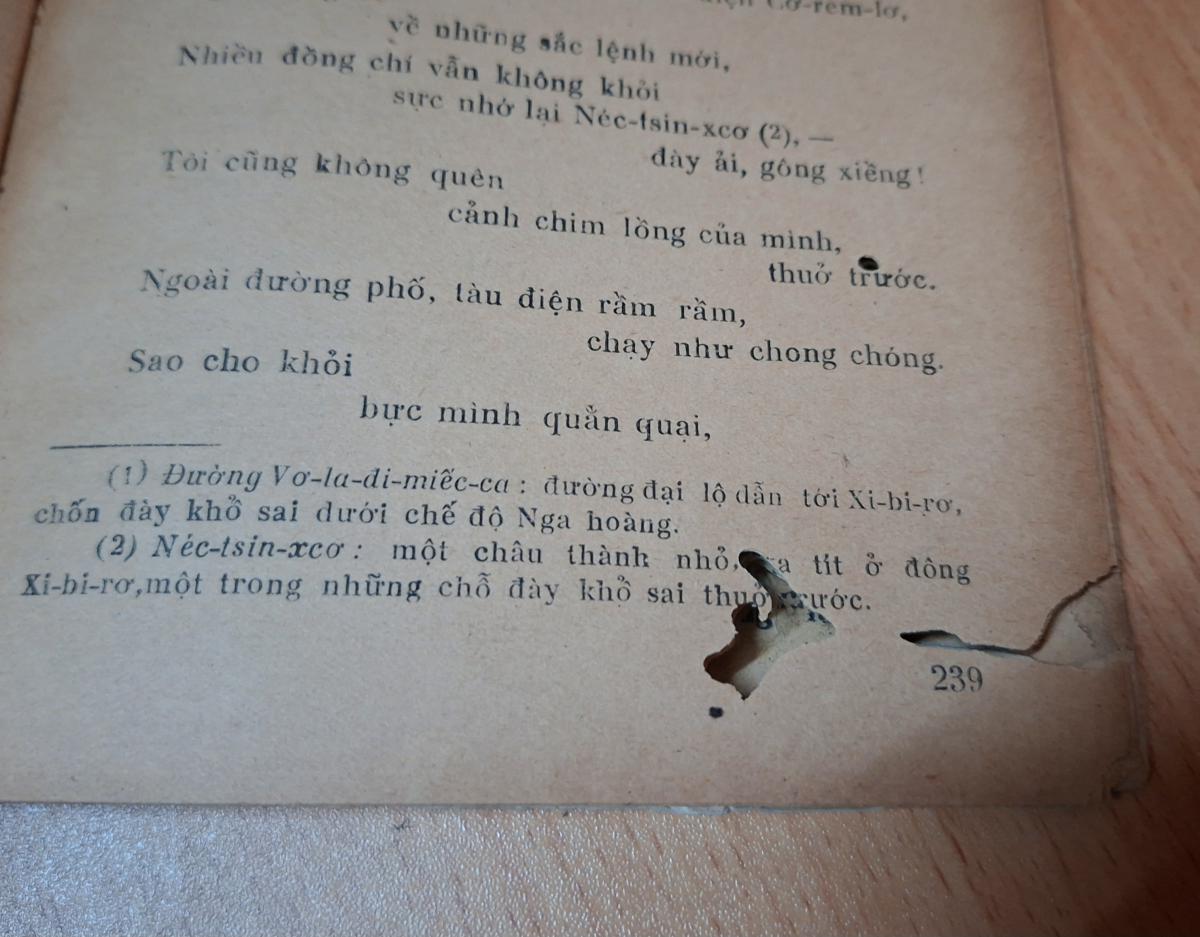 Cơ-rem-lơ,
về những sắc lệnh mới,
Nhiều đồng chí vẫn không khỏi
sực nhớ lại Néc-tsin-xcơ (2), —
đày ải, gông xiềng !
Tôi cũng không quên
cảnh chim lồng của mình,
thuở trước.
Ngoài đường phố, tàu điện rầm rầm,
chạy như chong chóng.
Sao cho khỏi
bực mình quằn quại,
(1) Đường Vơ-la-đi-miếc-ca : đường đại lộ dẫn tới Xi-bi-rơ,
chốn đày khổ sai dưới chế độ Nga hoàng.
(2) Néc-tsin-xcơ : một châu thành nhỏ, tít ở đông
Xi-bi-rơ,một trong những chỗ đày khổ sai thuở trước.
239